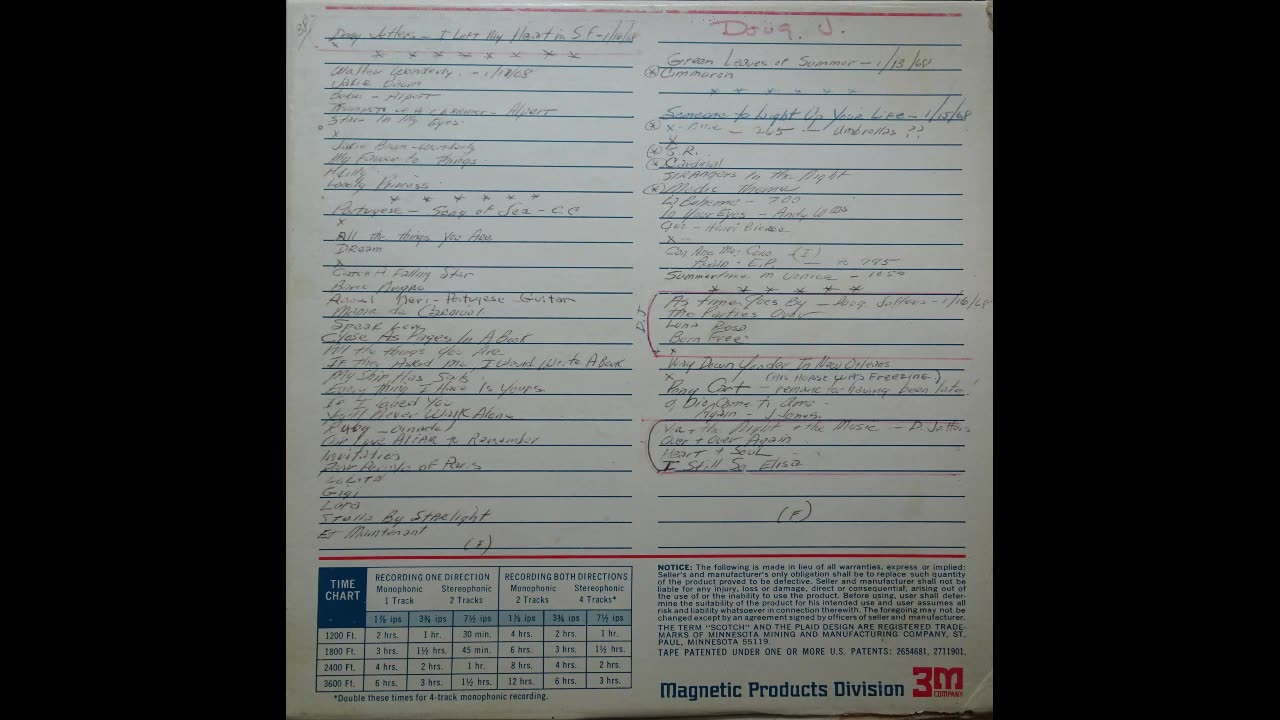 38
Doug Jeffers - I Left My Heart in S.F - 1/16/68
x
x x x x x x x
Walter Wonderly. - 1/17/68
Alpert
- Alpert
Stars In My Eyes
x
- Wonderly
My Favorite Things
Lovely Princess
x x x x x
Portugese - Song of Sea - O.C
x
All the things You Are
DREAM
x
Catch A Falling Star
Portugese Guitar
de Carnival
Speak Low
Close As Pages In A Book
All the things You Are
If They Asked Me I Would Write A Book
My Ship Has Sails
Every thing I Have Is Yours
If I Loved You
You'll Never Walk Alone
Ruby
AFFAR to Remember
Invitation
Poor People of Paris
LOLITA
Gigi
Lara
Stella By Starlight
Et Maintenant
(I)
Doug. J.
Green Leaves of Summer - 1/13/68
(x) Cimmaron
x x x x x
Someone to Light Up Your Life - 1/15/68
(x) x - - 265 - Umbrellas ??
x
(x) S.R.
(x) Cardinal
STRANGERS In the Night
(x) Medic Theme
La Boheme - 700
In Your Eyes - Andy W
x
(I)
- E.P. - 795
Summertime in Venice - 1055
x x x x x
D.J
As Time Goes By - Doug Jeffers - 1/16/68
The Parties Over
Luna Rosa
Born Free
x
Way Down Yonder In New Orleans
x (HIS HORSE WAS FREEZING)
Pony Cart - remark for having been late
Again - J. James.
+ the Night + the Music - D. Jeffers
Over + Over Again
Heart + Soul
I Still See Elisa
(F)
TIME CHART
RECORDING ONE DIRECTION RECORDING BOTH DIRECTIONS
Monophonic 1 Track Stereophonic 2 Tracks Monophonic 2 Tracks Stereophonic 4 Tracks*
1⅞ ips 3¾ ips 7½ ips 1⅞ ips 3¾ ips 7½ ips
1200 Ft. 2 hrs. 1 hr. 30 min. 4 hrs. 2 hrs. 1 hr.
1800 Ft. 3 hrs. 1½ hrs. 45 min. 6 hrs. 3 hrs. 1½ hrs.
2400 Ft. 4 hrs. 2 hrs. 1 hr. 8 hrs. 4 hrs. 2 hrs.
3600 Ft. 6 hrs. 3 hrs. 1½ hrs. 12 hrs. 6 hrs. 3 hrs.
*Double these times for 4-track monophonic recording.
NOTICE: The following is made in lieu of all warranties, express or implied:
Seller's and manufacturer's only obligation shall be to replace such quantity
of the product proved to be defective. Seller and manufacturer shall not be
liable for any injury, loss or damage, direct or consequential, arising out of
the use of or the inability to use the product. Before using, user shall deter-
mine the suitability of the product for his intended use and user assumes all
risk and liability whatsoever in connection therewith. The foregoing may not be
changed except by an agreement signed by officers of seller and manufacturer.
THE TERM "SCOTCH" AND THE PLAID DESIGN ARE REGISTERED TRADE-
MARKS OF MINNESOTA MINING AND MANUFACTURING COMPANY, ST.
PAUL, MINNESOTA 55119.
TAPE PATENTED UNDER ONE OR MORE U.S. PATENTS: 2654681, 2711901.
Magnetic Products Division 3M COMPANY